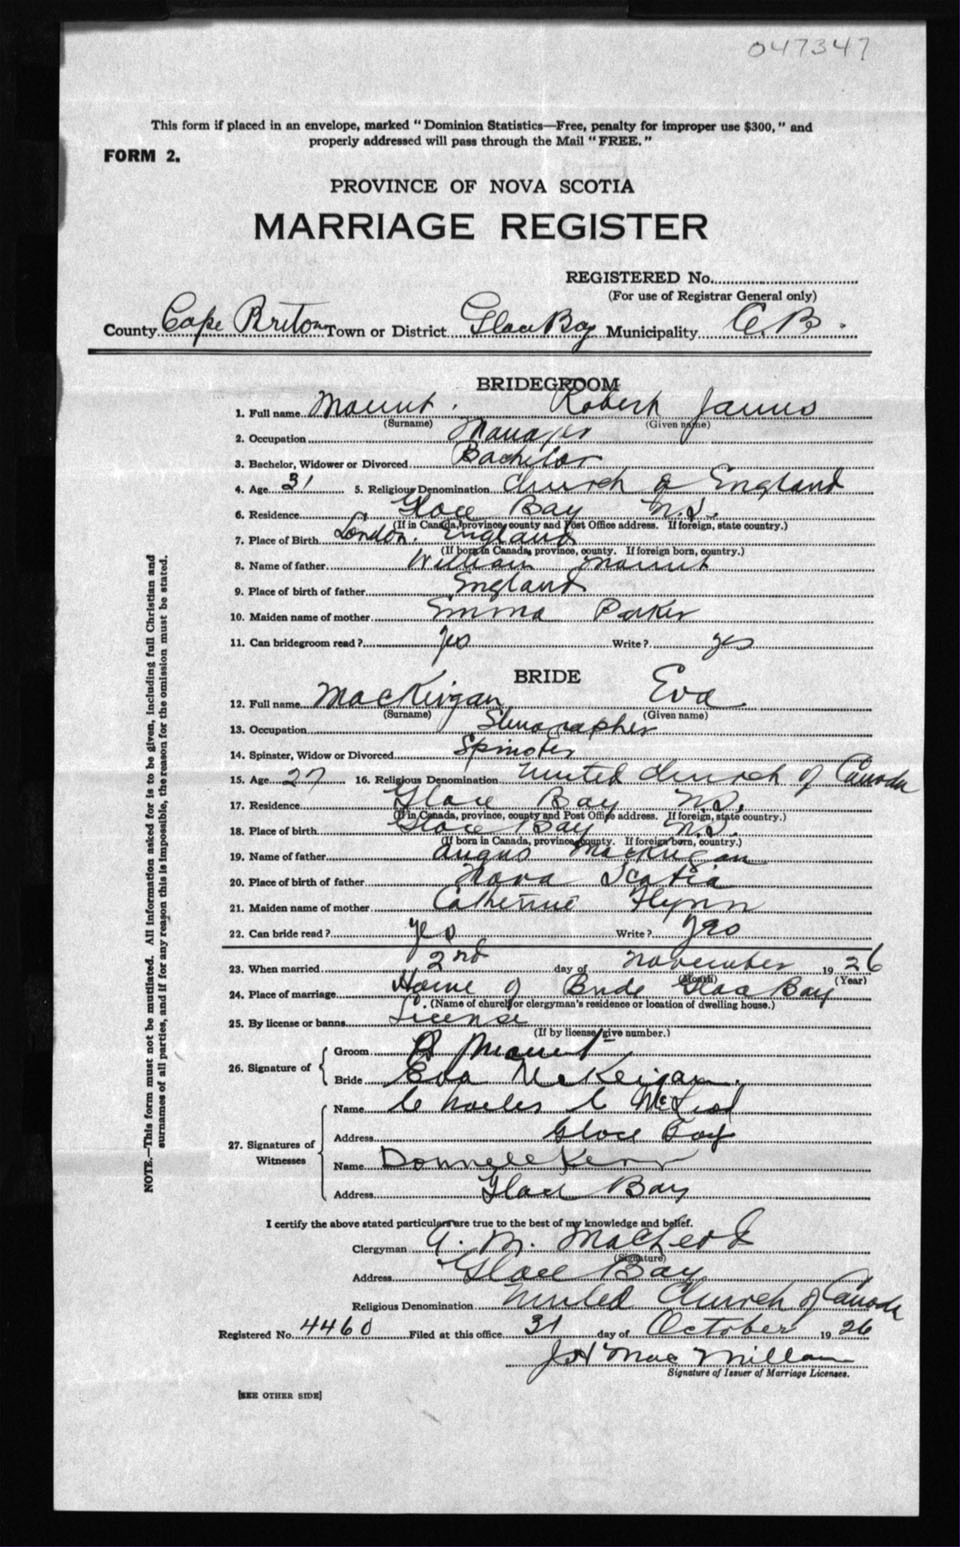 047347
This form if placed in an envelope, marked "Dominion Statistics—Free, penalty for improper use $300," and
properly addressed will pass through the Mail "FREE."
FORM 2.
PROVINCE OF NOVA SCOTIA
MARRIAGE REGISTER
REGISTERED No.
(For use of Registrar General only)
County Cape Breton Town or District Glace Bay Municipality C.B.
BRIDEGROOM
1. Full name Mount. Robert James
(Surname) (Given name)
2. Occupation Manager
3. Bachelor, Widower or Divorced Bachelor
4. Age 31 5. Religious Denomination Church of England
6. Residence Glace Bay N.S.
(If in Canada, province, county and Post Office address. If foreign, state country.)
7. Place of Birth London. England
(If born in Canada, province, county. If foreign born, country.)
8. Name of father William Mount
9. Place of birth of father England
10. Maiden name of mother Emma Parker
11. Can bridegroom read? yes Write? yes
BRIDE
12. Full name MacKeigan Eva
(Surname) (Given name)
13. Occupation Stenographer
14. Spinster, Widow or Divorced Spinster
15. Age 27 16. Religious Denomination United Church of Canada
17. Residence Glace Bay N.S.
(If in Canada, province, county and Post Office address. If foreign, state country.)
18. Place of birth Glace Bay N.S.
(If born in Canada, province, county. If foreign born, country.)
19. Name of father Angus MacKeigan
20. Place of birth of father Nova Scotia
21. Maiden name of mother Catherine Flynn
22. Can bride read? yes Write? yes
23. When married 2nd day of November 1926
(Month) (Year)
24. Place of marriage Home of Bride Glace Bay
(Name of church or clergyman's residence or location of dwelling house.)
25. By license or banns License
(If by license, give number.)
26. Signature of
Groom R Mount
Bride Eva McKeigan.
27. Signatures of Witnesses
Name Charles C McLeod
Address Glace Bay
Name Kerr
Address Glace Bay
I certify the above stated particulars are true to the best of my knowledge and belief.
Clergyman A. M. MacLeod
(Signature)
Address Glace Bay
Religious Denomination United Church of Canada
Registered No. 4460 Filed at this office 31 day of October 1926
J H MacMillan
Signature of Issuer of Marriage Licenses.
[SEE OTHER SIDE]
NOTE.—This form must not be mutilated. All information asked for is to be given, including full Christian and
surnames of all parties, and if for any reason this is impossible, the reason for the omission must be stated.